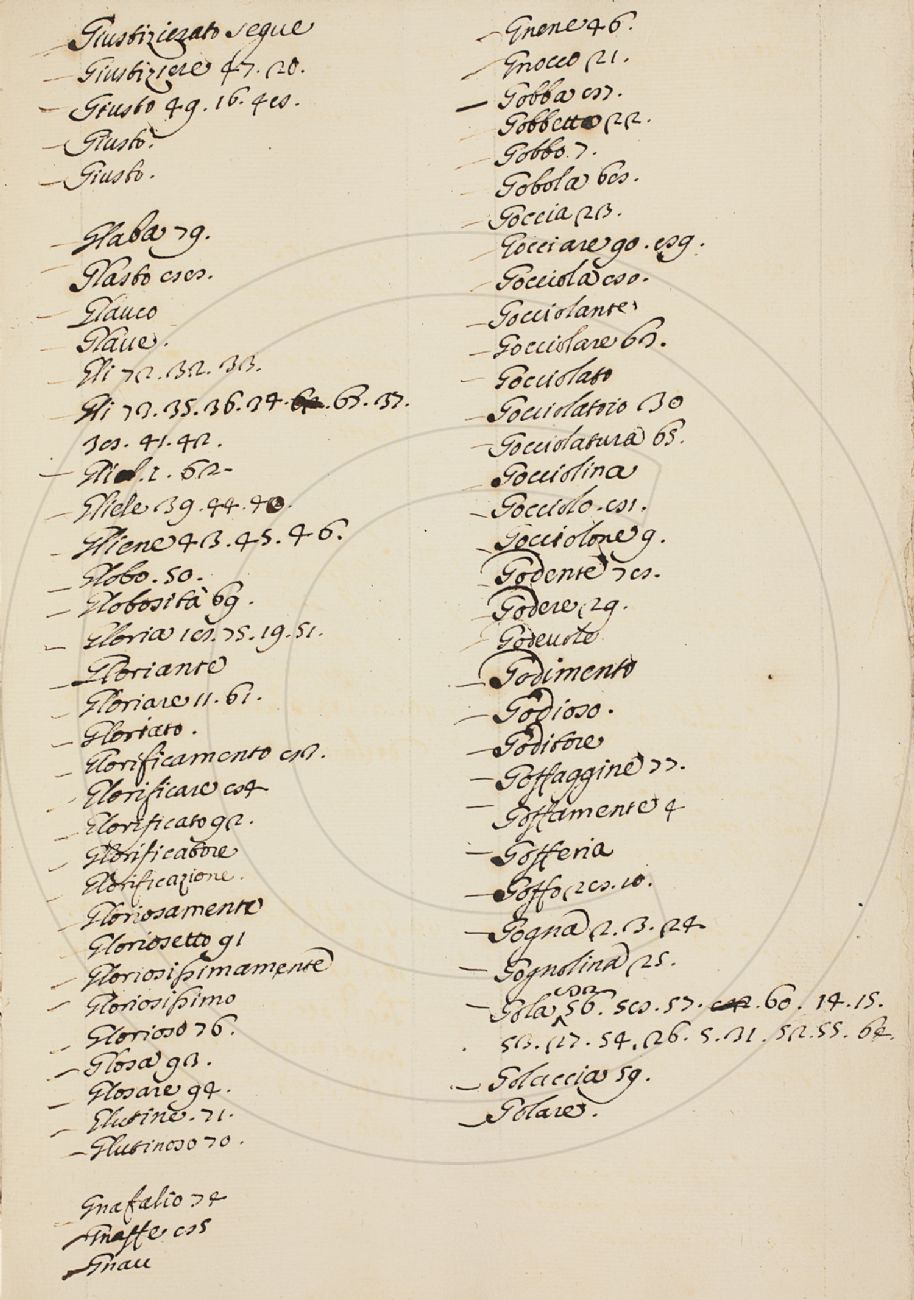 Giustiziezato segue
Giustiziere 47. 20.
Giusto 49. 16. 48.
Giusto.
Giusto.
Glaba 79.
Glasto 88.
Glauco
Glaue.
Gli 72. 32. 33.
Gli 73. 35. 36. 34. 63. 37.
38. 41. 42.
1. 62
Gliele 39. 44.
Gliene 43. 45. 46.
Globo. 50.
Globosità 69.
Gloria 18. 75. 19. 51.
Gloriante
Gloriare 11. 61.
Gloriato.
Glorificamento 83.
Glorificare 84
Glorificato 92.
Glorificatore
Glorificazione.
Gloriosamente
Gloriosetto 91
Gloriosissimamente
Gloriosissimo
Glorioso 76.
Glosa 93.
Glosare 94.
Glutine. 71.
Glutinoso 70.
Gnafalio 74
Gnaffe 85
Gnau
Gnene 46.
Gnocco 21.
Gobba 87.
Gobbetto 22.
Gobbo 7.
Gobola 68.
Goccia 23.
Gocciare 90. 89.
Gocciola 80.
Gocciolante
Gocciolare 63.
Gocciolato
Gocciolatoio 30
Gocciolatura 65.
Gocciolina
Gocciolo. 81.
Gocciolone 9.
Godente 78.
Godere 29.
Godeuole
Godimento
Godioso.
Goditore
Goffaggine 77.
Goffamente 4
Gofferia
Goffo 28. 10.
Gogna 2. 3. 24
Gognolina 25.
Gola 82 56. 58. 57. 60. 14. 15.
53. 27. 54. 26. 5. 31. 52. 55. 64.
Golaccia 59.
Golare.